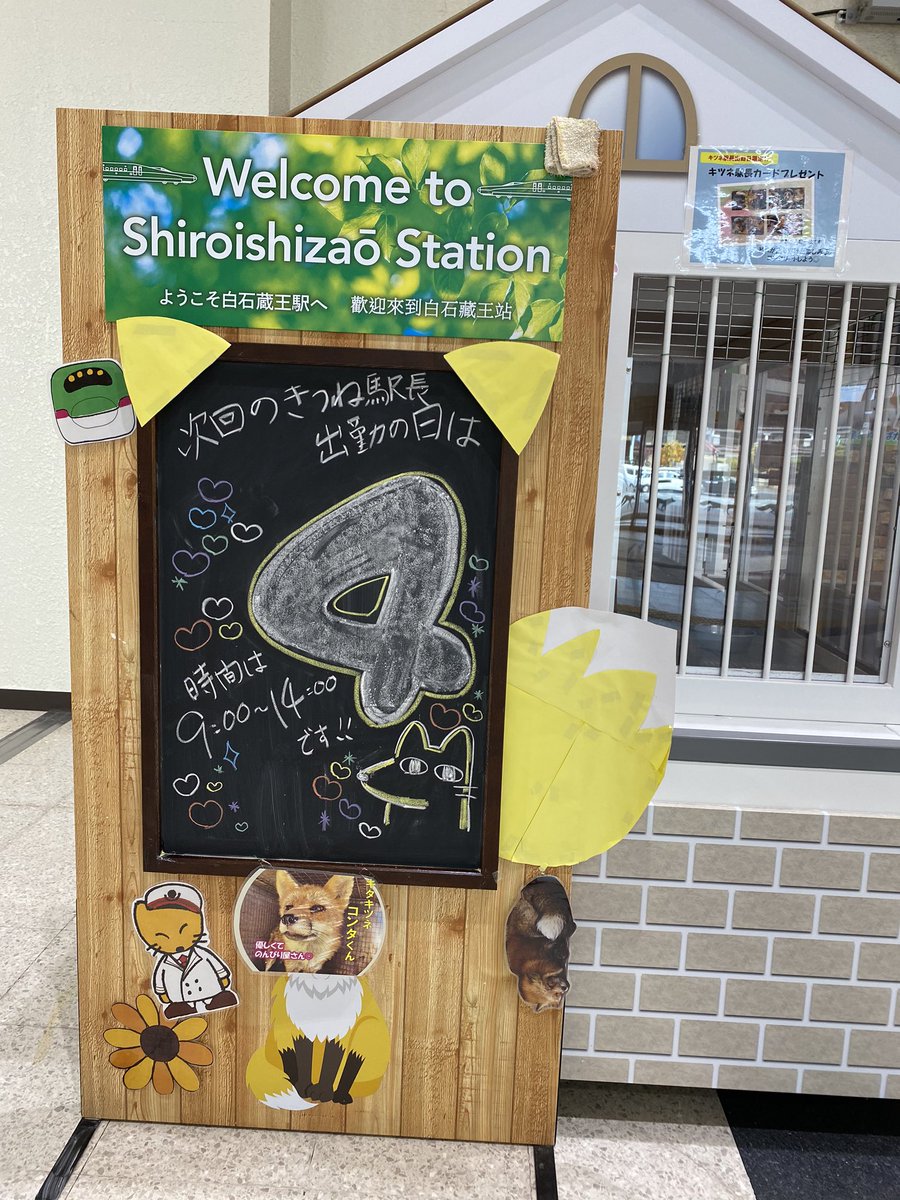 Welcome to
Shiroishizaō Station
ようこそ白石蔵王駅へ 歡迎來到白石藏王站
キツネ駅長カードプレゼント
次回のきつね駅長
出勤の日は
4
時間は
9:00~14:00
です!!
キタキツネ
コンタくん
優しくて
のんびり屋さん